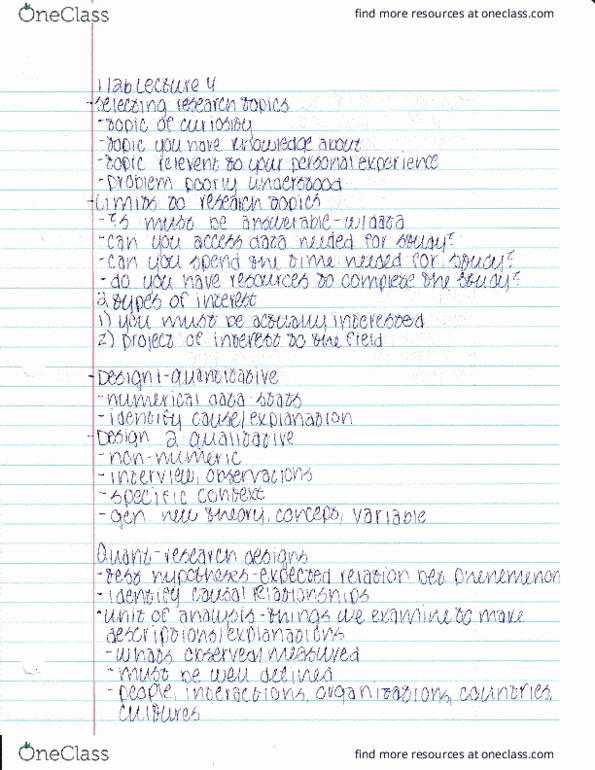 OneClass
find more resources at oneclass.com
11ab Lecture 4
- selecting research topics
- topic of curiosity
- topic you have knowledge about
- topic relevent to your personal experience
- problem poorly understood
- Limits to research topics
- ?s must be answerable - w/data
- can you access data needed for study?
- can you spend the time needed for study?
- do you have resources to complete the study?
2 types of interest
1) you must be actually interested
2) project of interest to the field
- Design 1 - quantitative
- numerical data - stats
- identify cause/explanation
- Design 2 qualitative
- non-numeric
- interview, observations
- specific context
- gen. new theory, concept, variable
Quant - research designs
- test hypotheses - expected relation bet phenemenon
- identify causal relationships
• unit of analysis - things we examine to make
descriptions/explanations
- whats observed/measured
- must be well defined
- people, interactions, organizations, countries,
cultures
OneClass
find more resources at oneclass.com